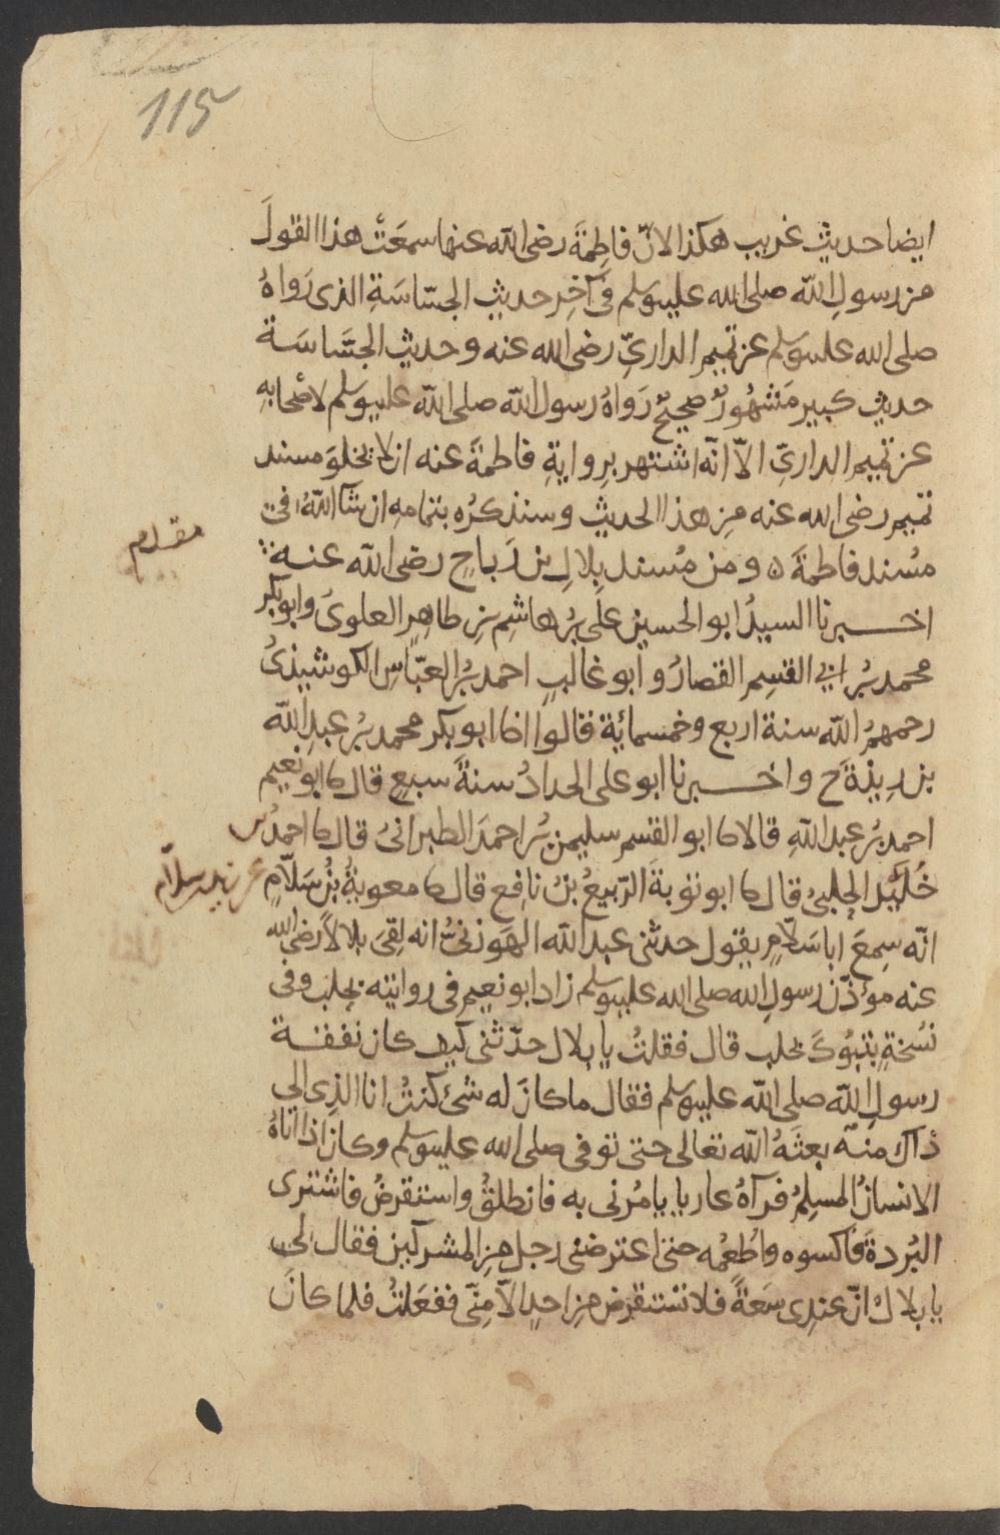 115
ايضا حديث غريب هكذا لانّ فاطِمَةَ رضى الله عنها سمعَتْ هذا القولَ
من رسولِ الله صلى الله عليه وسلم فى آخِر حديثِ الجسّاسَةِ الذى رَواهُ
صلى الله عليه وسلم عن تميم الدارىّ رضى الله عنه وحديث الجسَّاسَة
حديث كبير مَشهُورٌ صحيحٌ رَواهُ رسول الله صلى الله عليه وسلم لأصْحابِهِ
عن تميم الدارىّ الاّ انّه اشتهر بِروايةِ فاطمةَ عنه لان لا يخلوَ مسند
تميم رضى الله عنه من هذا الحديث وسنذكرُه بتمامِه ان شآ اللهُ فى
مُسند فاطمةَ ٥ ومن مُسند بِلالِ بن رَباحٍ رضى الله عنه
مقدم
اخبرنا السيدُ ابو الحسين علىُ بنُ هاشِم بنِ طاهِرٍ العلوىُ وابو بكر
محمد بنُ ابى القسِم القصارُ وابو غالبٍ احمد بنُ العبّاسِ الكوشيذىُ
رحمهمُ الله سنة اربع وخمسمائة قالوا انا ابو بكر محمد بنُ عبدِ الله
بن رِيذَةَ ح واخبرنا ابو على الحدادُ سنةَ سبعٍ قال نا ابو نعيم
احمد بنُ عبد اللهِ قالا نا ابو القسم سليمن بنُ احمدَ الطبرانىُ قال نا احمدُ بن
خُلَيْد الحلبىُ قال نا ابو توبةَ الرّبيعُ بنُ نافِع قال نا معوية بنُ سَلاّمٍ عن زيد بن سلاّم
انّه سِمعَ ابا سَلاّمٍ يقول حدثنى عبد الله الهَوزنىُّ انه لقِىَ بلالاً رضى الله
عنه مؤذّن رسولِ الله صلى الله عليه وسلم زاد ابو نعيم فى روايته بحلب وفى
نُسخةٍ بتبُوكَ بحلب قال فقلتُ يا بلال حدّثنى كيف كان نفقة
رسولِ الله صلى الله عليه وسلم فقال ما كانَ له شىءٌ كنتُ انا الذِى الِى
ذاك منه بعثَهُ الله تعالى حتى توفى صلى الله عليه وسلم وكان اذا اتاهُ
الانسانُ المسلِمُ فرآهُ عاريا يامُرنى به فانطلقُ واستقرِضُ فاشترى
البُردةَ فاكسوه واُطعُمه حتى اعترضنى رجل من المشركين فقال لى
يا بلالُ انّ عندِى سَعةً فلا تستقرض من احدٍ الاّ مِنّى ففعَلتُ فلما كانَ